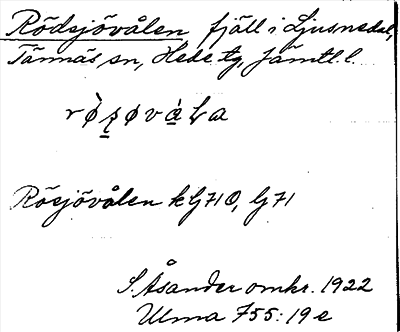 Rödsjövålen, fjäll i Ljusnedal,
Tännäs sn, Hede tg, Jämtl. l.
Rösjövålen kG71Ö, G71
S. Åsander omkr. 1922
Ulma 755:19 e